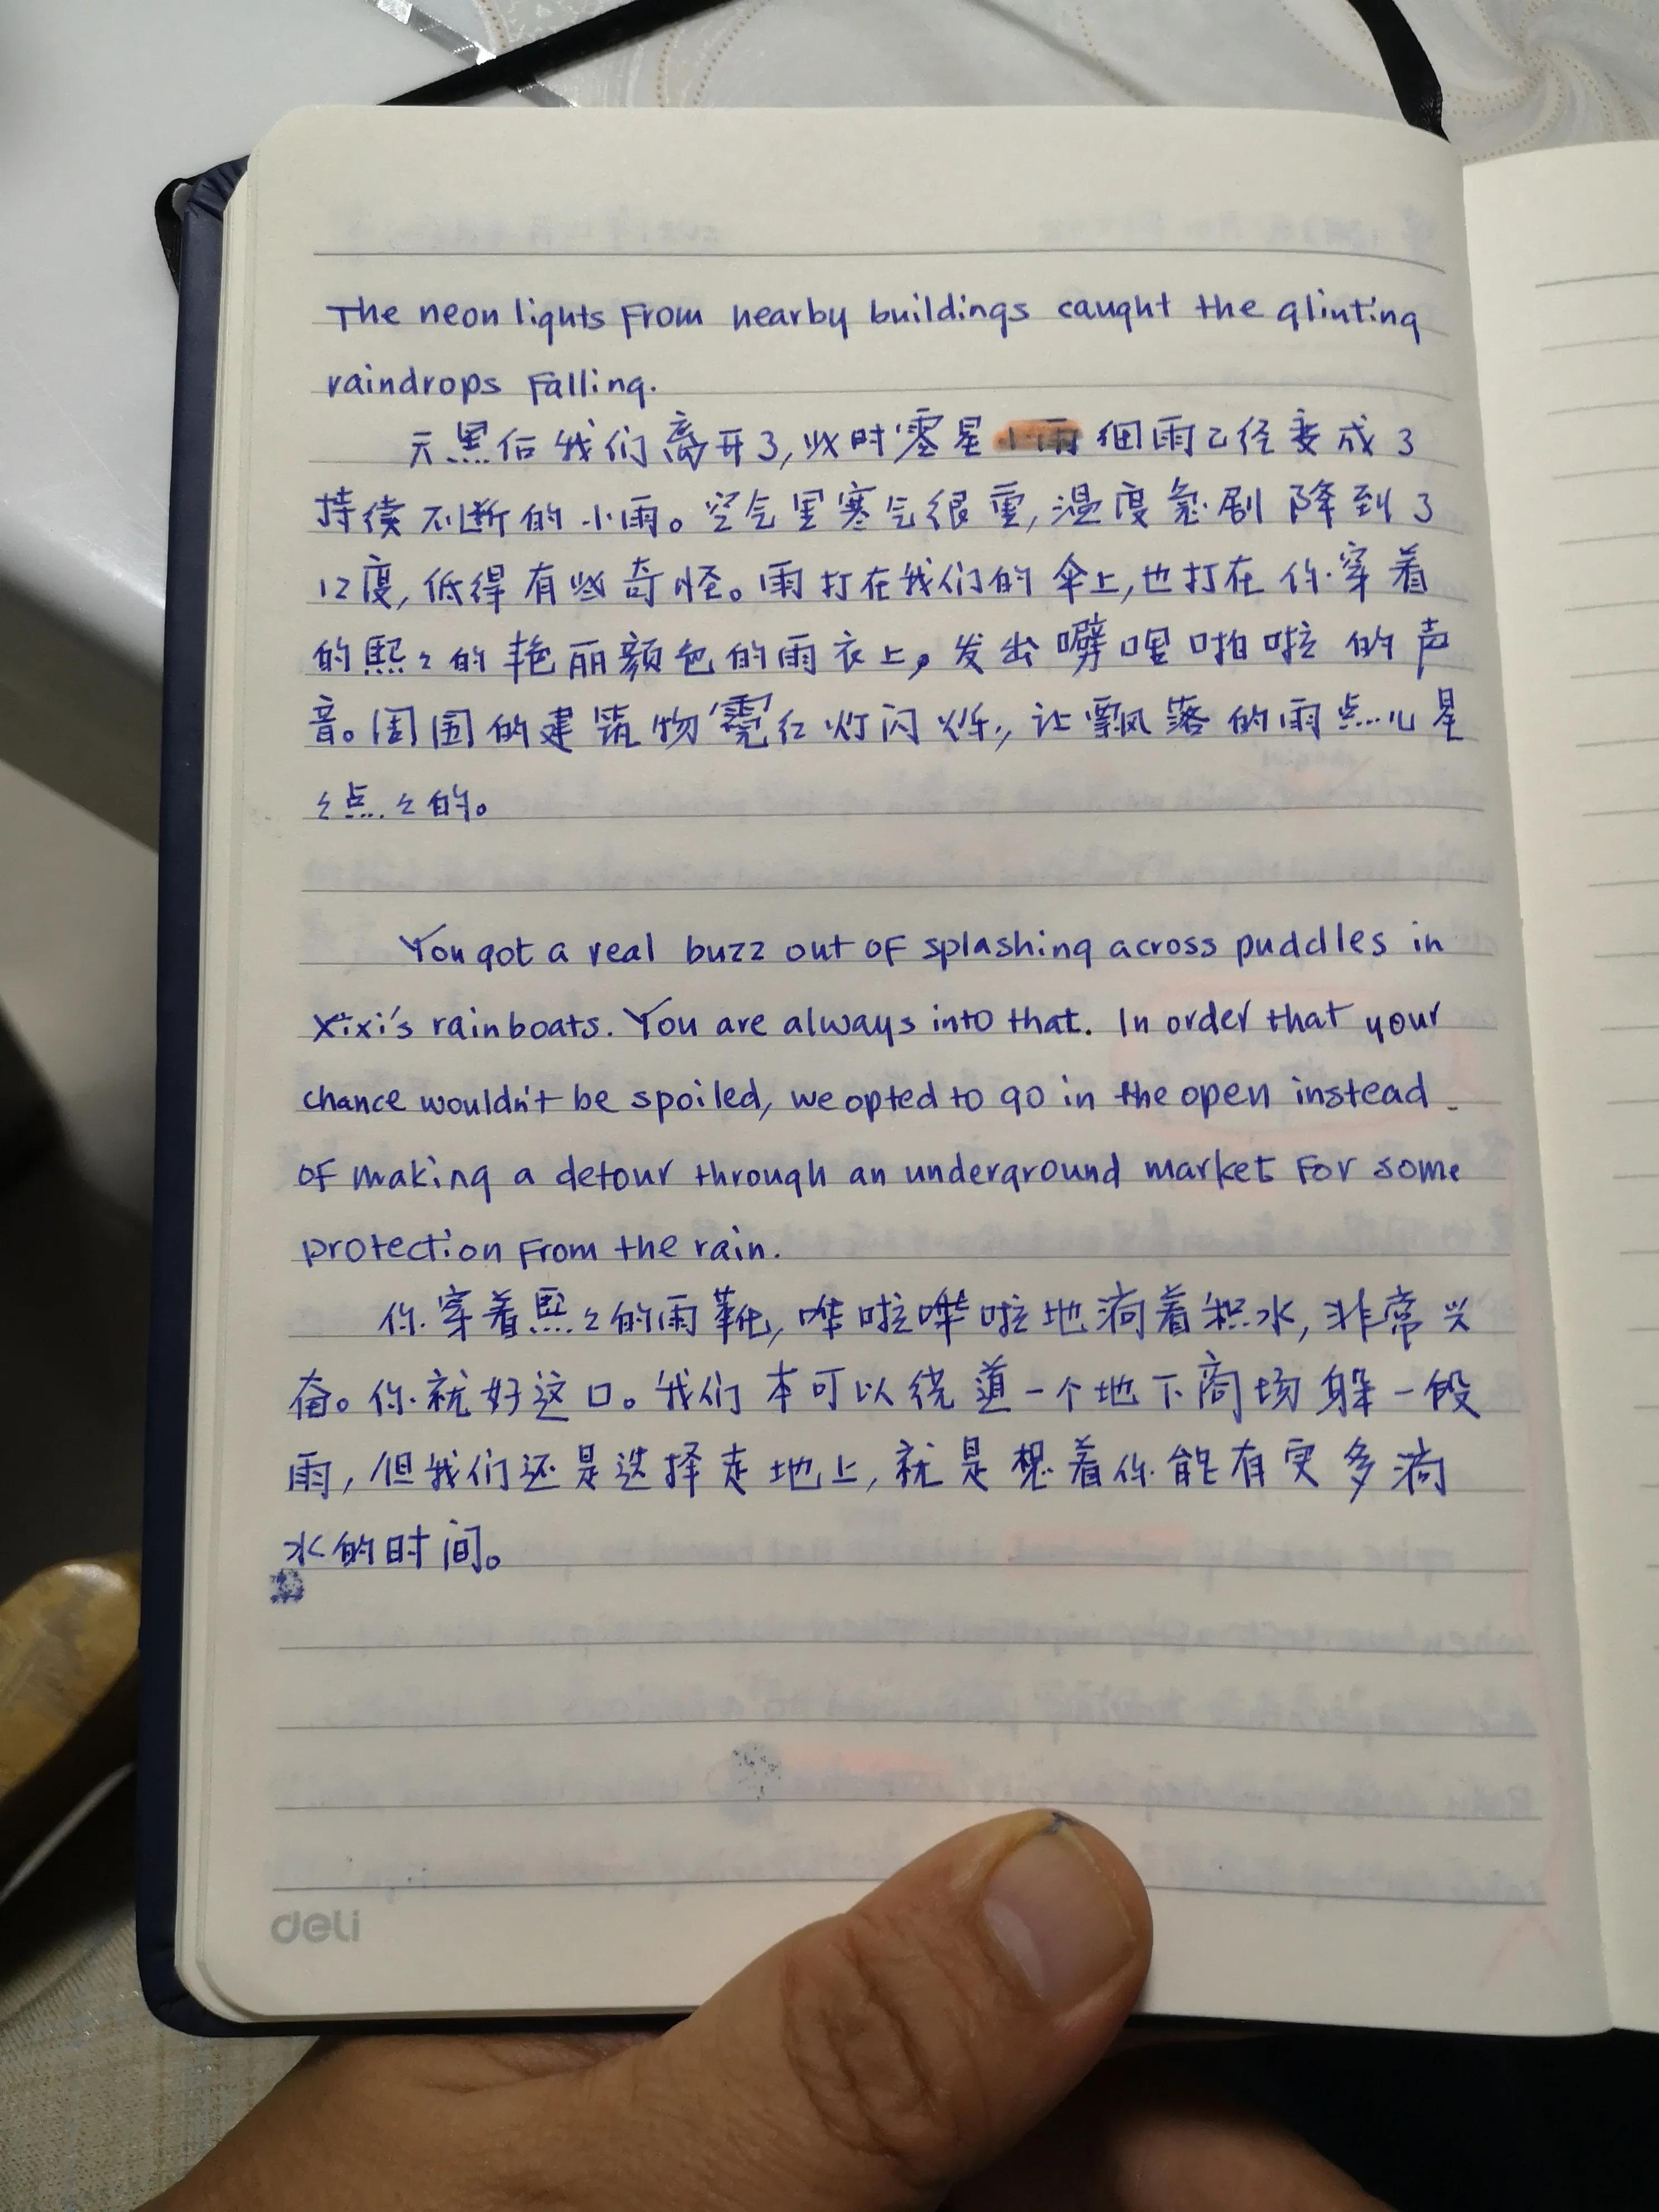 The neon lights from nearby buildings caught the glinting
raindrops falling.
天黑后我们离开了,此时零星细雨已经变成了
持续不断的小雨。空气里寒气很重,温度急剧降到了
12度,低得有些奇怪。雨打在我们的伞上,也打在你穿着
的熙々的艳丽颜色的雨衣上,发出噼哩啪啦的声
音。周围的建筑物霓红灯闪烁,让飘落的雨点儿星
々点々的。
You got a real buzz out of splashing across puddles in
Xixi's rainboats. You are always into that. In order that your
chance wouldn't be spoiled, we opted to go in the open instead
of making a detour through an underground market for some
protection from the rain.
你穿着熙々的雨靴,哗啦哗啦地淌着积水,非常兴
奋。你就好这口。我们本可以绕道一个地下商场躲一段
雨,但我们还是选择走地上,就是想着你能有更多淌
水的时间。
deli